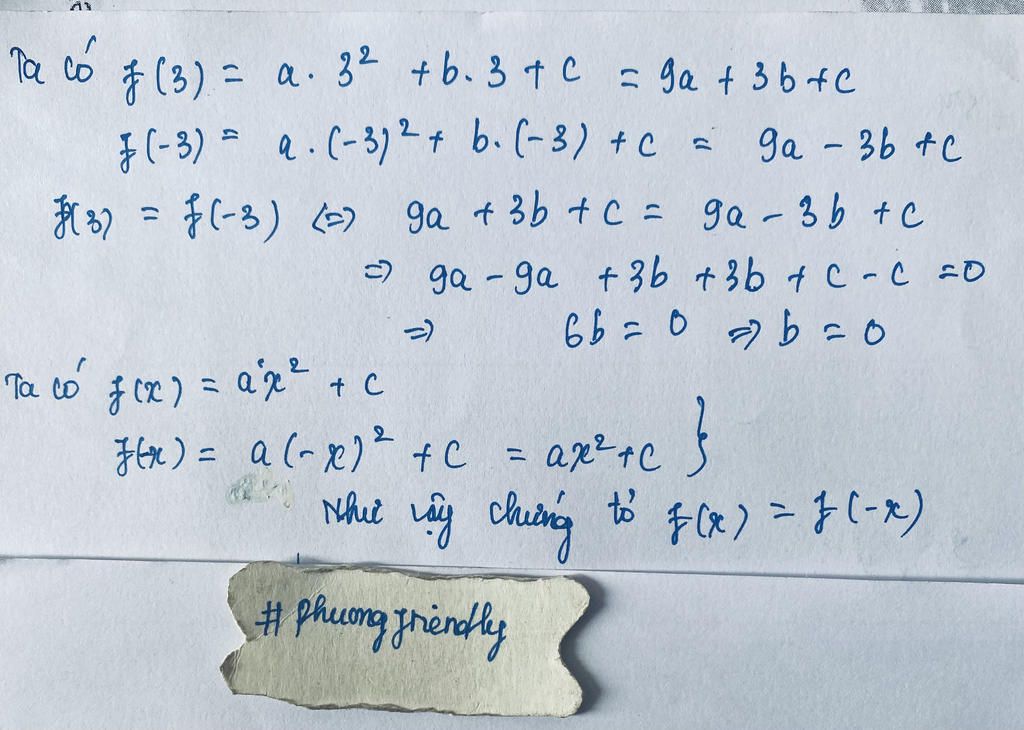 Ta có f(3) = a. 3² + b. 3 + c = 9a + 3b + c
f(-3) = a. (-3)² + b. (-3) + c = 9a - 3b + c
f(3) = f(-3) <=> 9a + 3b + c = 9a - 3b + c
=> 9a - 9a + 3b + 3b + c - c = 0
=> 6b = 0 => b = 0
Ta có f(x) = ax² + c
f(-x) = a(-x)² + c = ax² + c }
Như vậy chứng tỏ f(x) = f(-x)
# phuong friendly